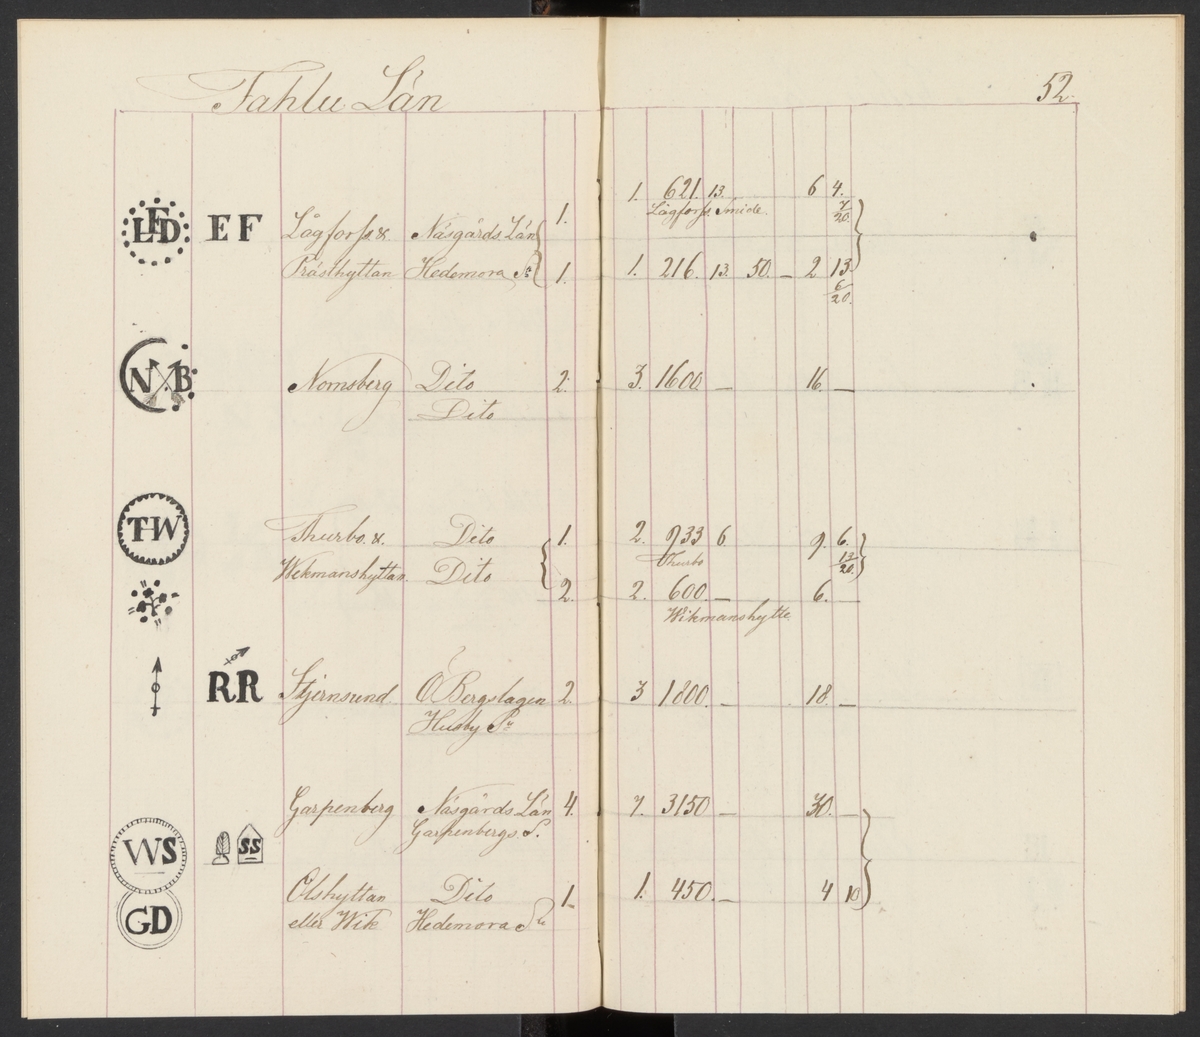 Fahlu Län
52.
LFD E F Lågforss & Näsgårds Län 1. 1. 621. 13. 6 4. 7/20.
Lågforss Smide.
Prästhyttan Hedemora Sn 1. 1. 216. 13. 50. – 2 13 6/20.
NB Nornsberg Dito 2. 3. 1600. – 16. –
Dito
TW Thurbo & Dito 1. 2. 933 6. 9. 6. 13/20.
Thurbo
Wikmanshyttan. Dito 2. 2. 600. – 6. –
Wikmanshytte.
RR Stjernsund Ö Bergslagen 2. 3 1800. – 18. –
Husby Sn
Garpenberg Näsgårds Län 4. 7. 3150 – 30. –
Garpenbergs S.
WS SS
Olshyttan Dito 1. 1. 450. – 4 10
GD eller Wik Hedemora Sn